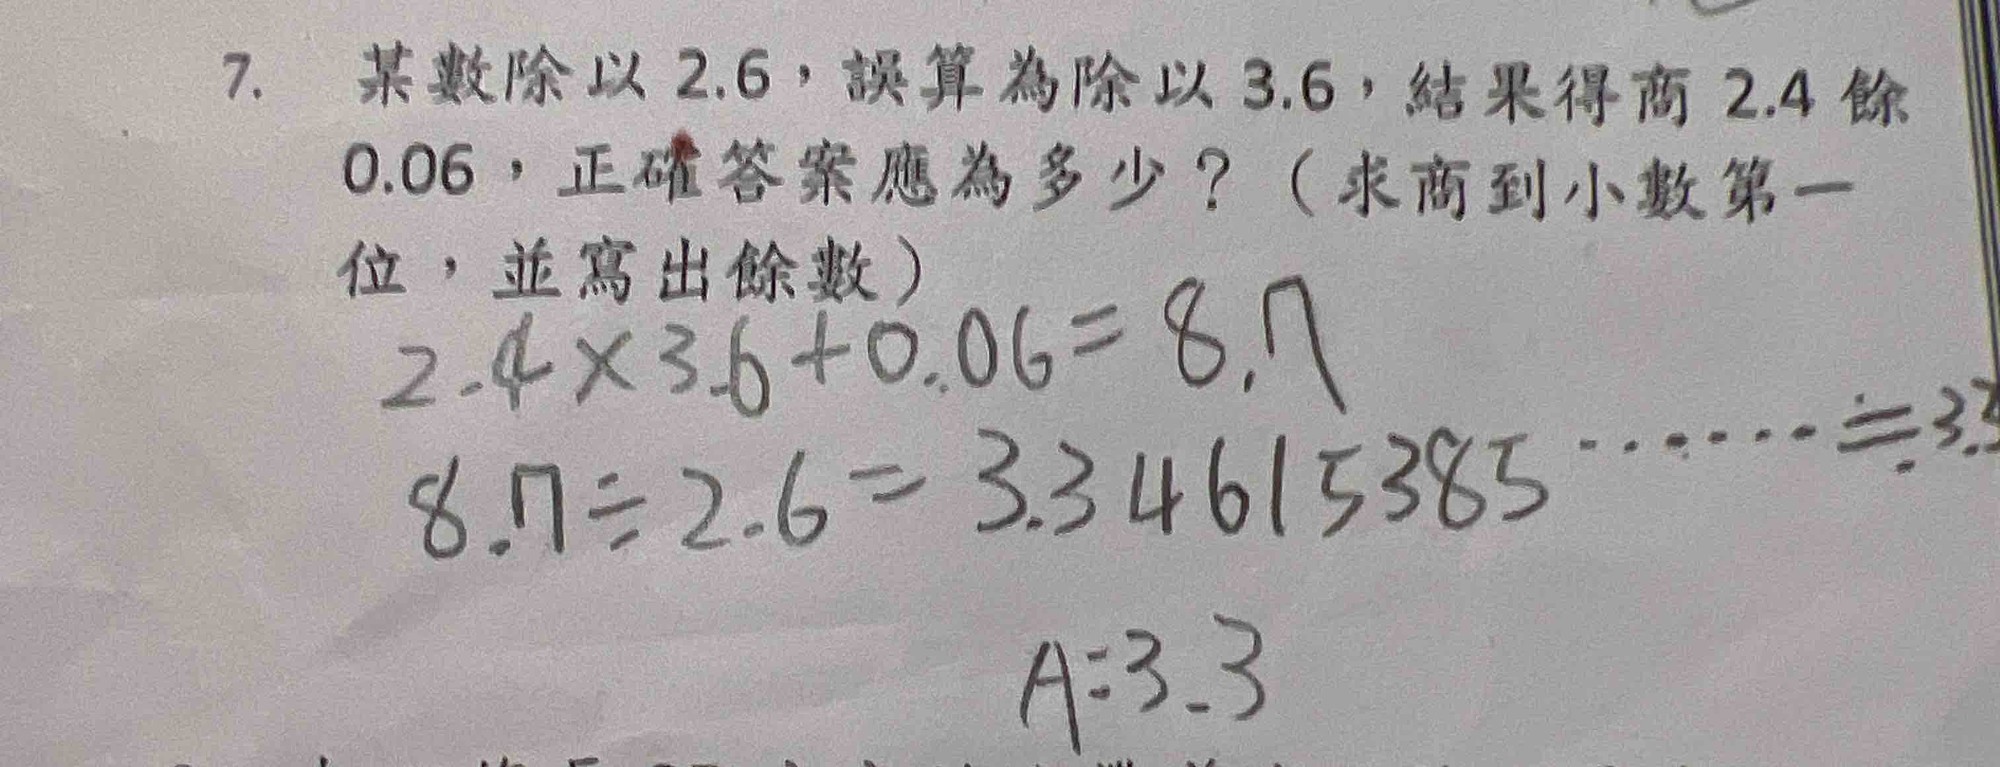 7. 某數除以2.6，誤算為除以3.6，結果得商2.4餘
0.06，正確答案應為多少？（求商到小數第一
位，並寫出餘數）
2.4×3.6+0.06=8.7
8.7÷2.6=3.34615385……≒3.3
A:3.3